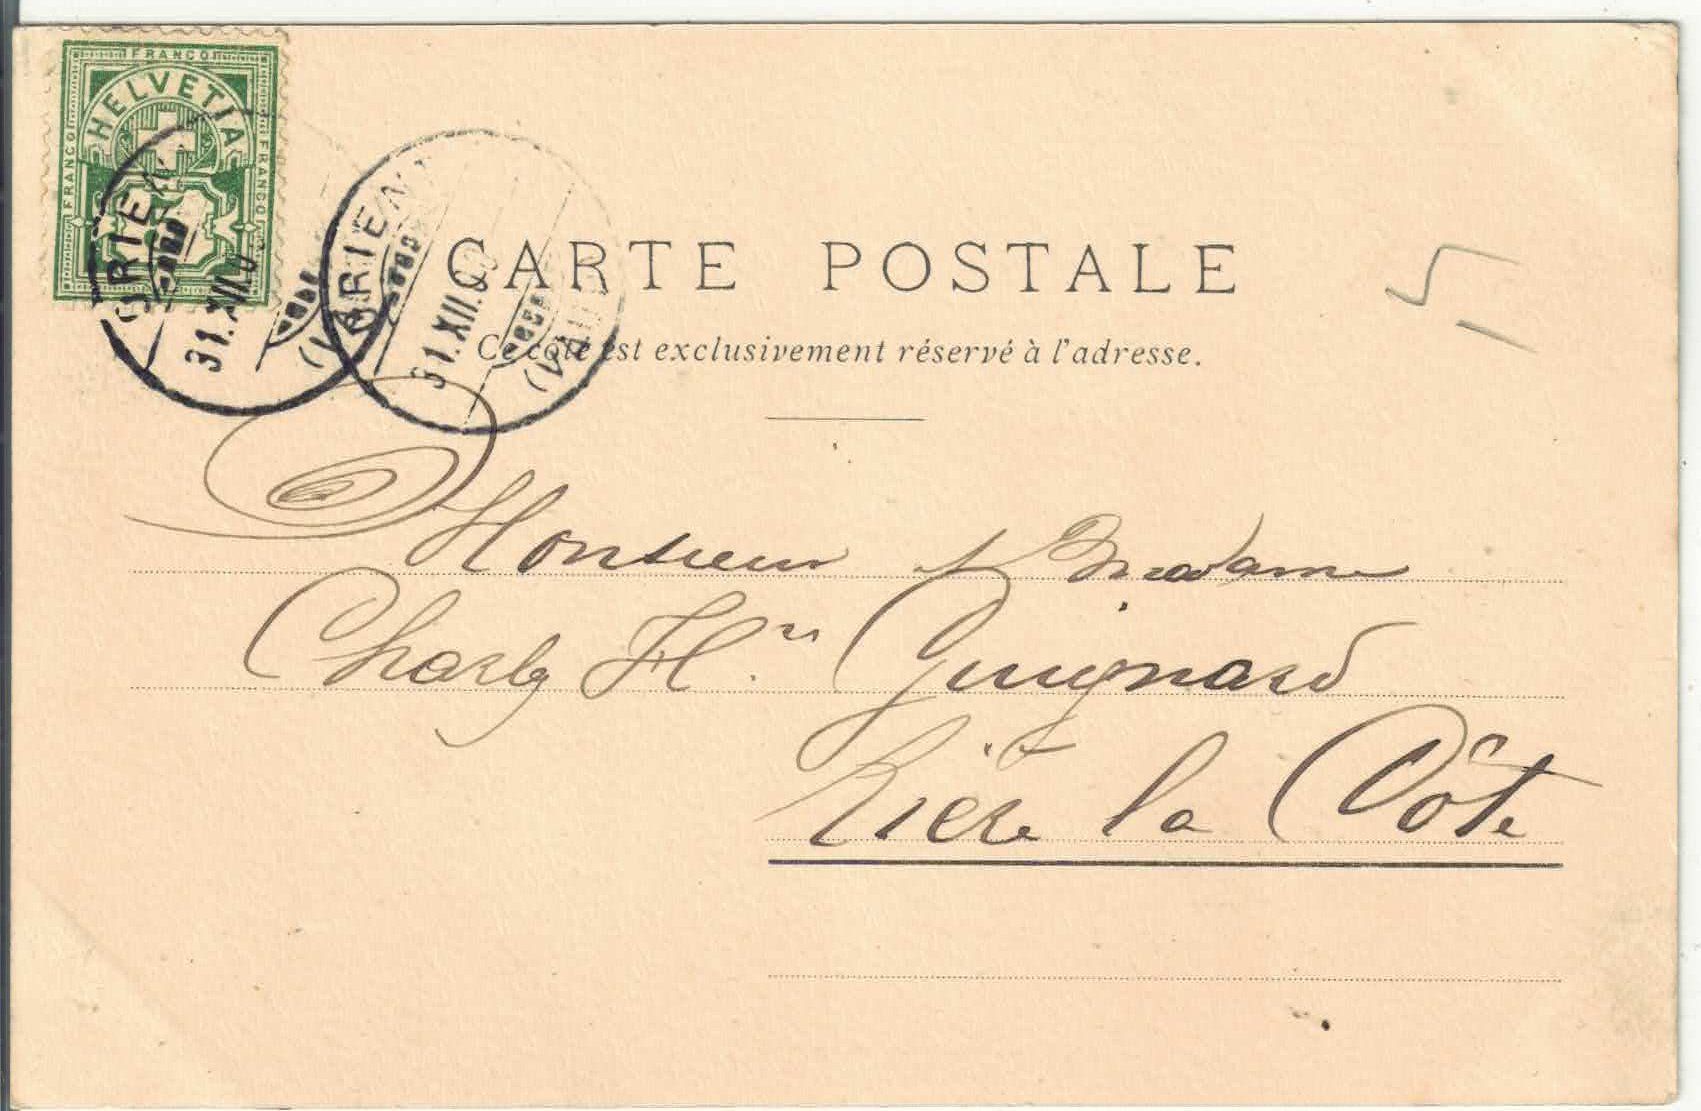 FRANCO
HELVETIA
FRANCO
FRANCO
ORIEN
31.XII.0
(VA
ORIEN
31.XII.00
(VAU
CARTE POSTALE
Ce côté est exclusivement réservé à l'adresse.
5
Monsieur & Madame
Charly Hri Guignard
Rière la Côte